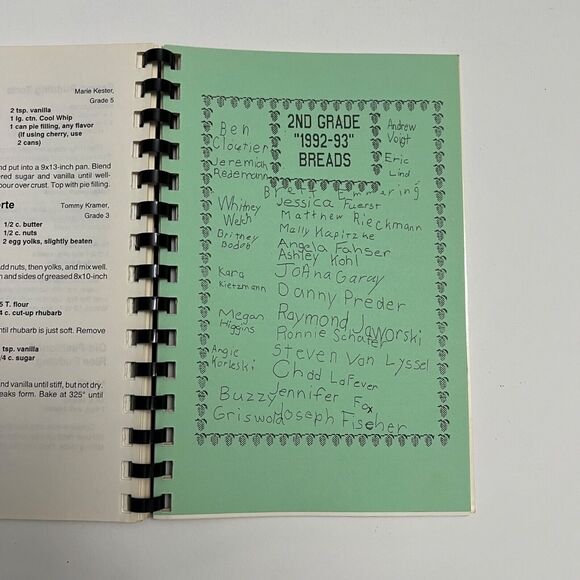 Marie Kester,
Grade 5
2 tsp. vanilla
1 lg. ctn. Cool Whip
1 can pie filling, any flavor
(If using cherry, use
2 cans)
nd put into a 9x13-inch pan. Blend
ered sugar and vanilla until well-
pour over crust. Top with pie filling.
erte
Tommy Kramer,
Grade 3
1/2 c. butter
1/2 c. nuts
2 egg yolks, slightly beaten
dd nuts, then yolks, and mix well.
n and sides of greased 8x10-inch
5 T. flour
4 c. cut-up rhubarb
ntil rhubarb is just soft. Remove
tsp. vanilla
/4 c. sugar
and vanilla until stiff, but not dry.
eaks form. Bake at 325° until
2ND GRADE
"1992-93"
BREADS
Ben
Cloutier
Jeremiah
Redemann
Whitney
Welch
Britney
Bodoh
Kara
Kietzmann
Megan
Higgins
Angie
Korleski
Buzz
Griswold
Andrew
Voigt
Eric
Lind
Jessica Fuerst
Matthew Rieckmann
Mally Kapitzke
Angela Fahser
Ashley Kohl
JoAna Garay
Danny Preder
Raymond Jaworski
Ronnie Schafer
Steven Van Lyssel
Chad LaFever
Jennifer Fox
Joseph Fischer